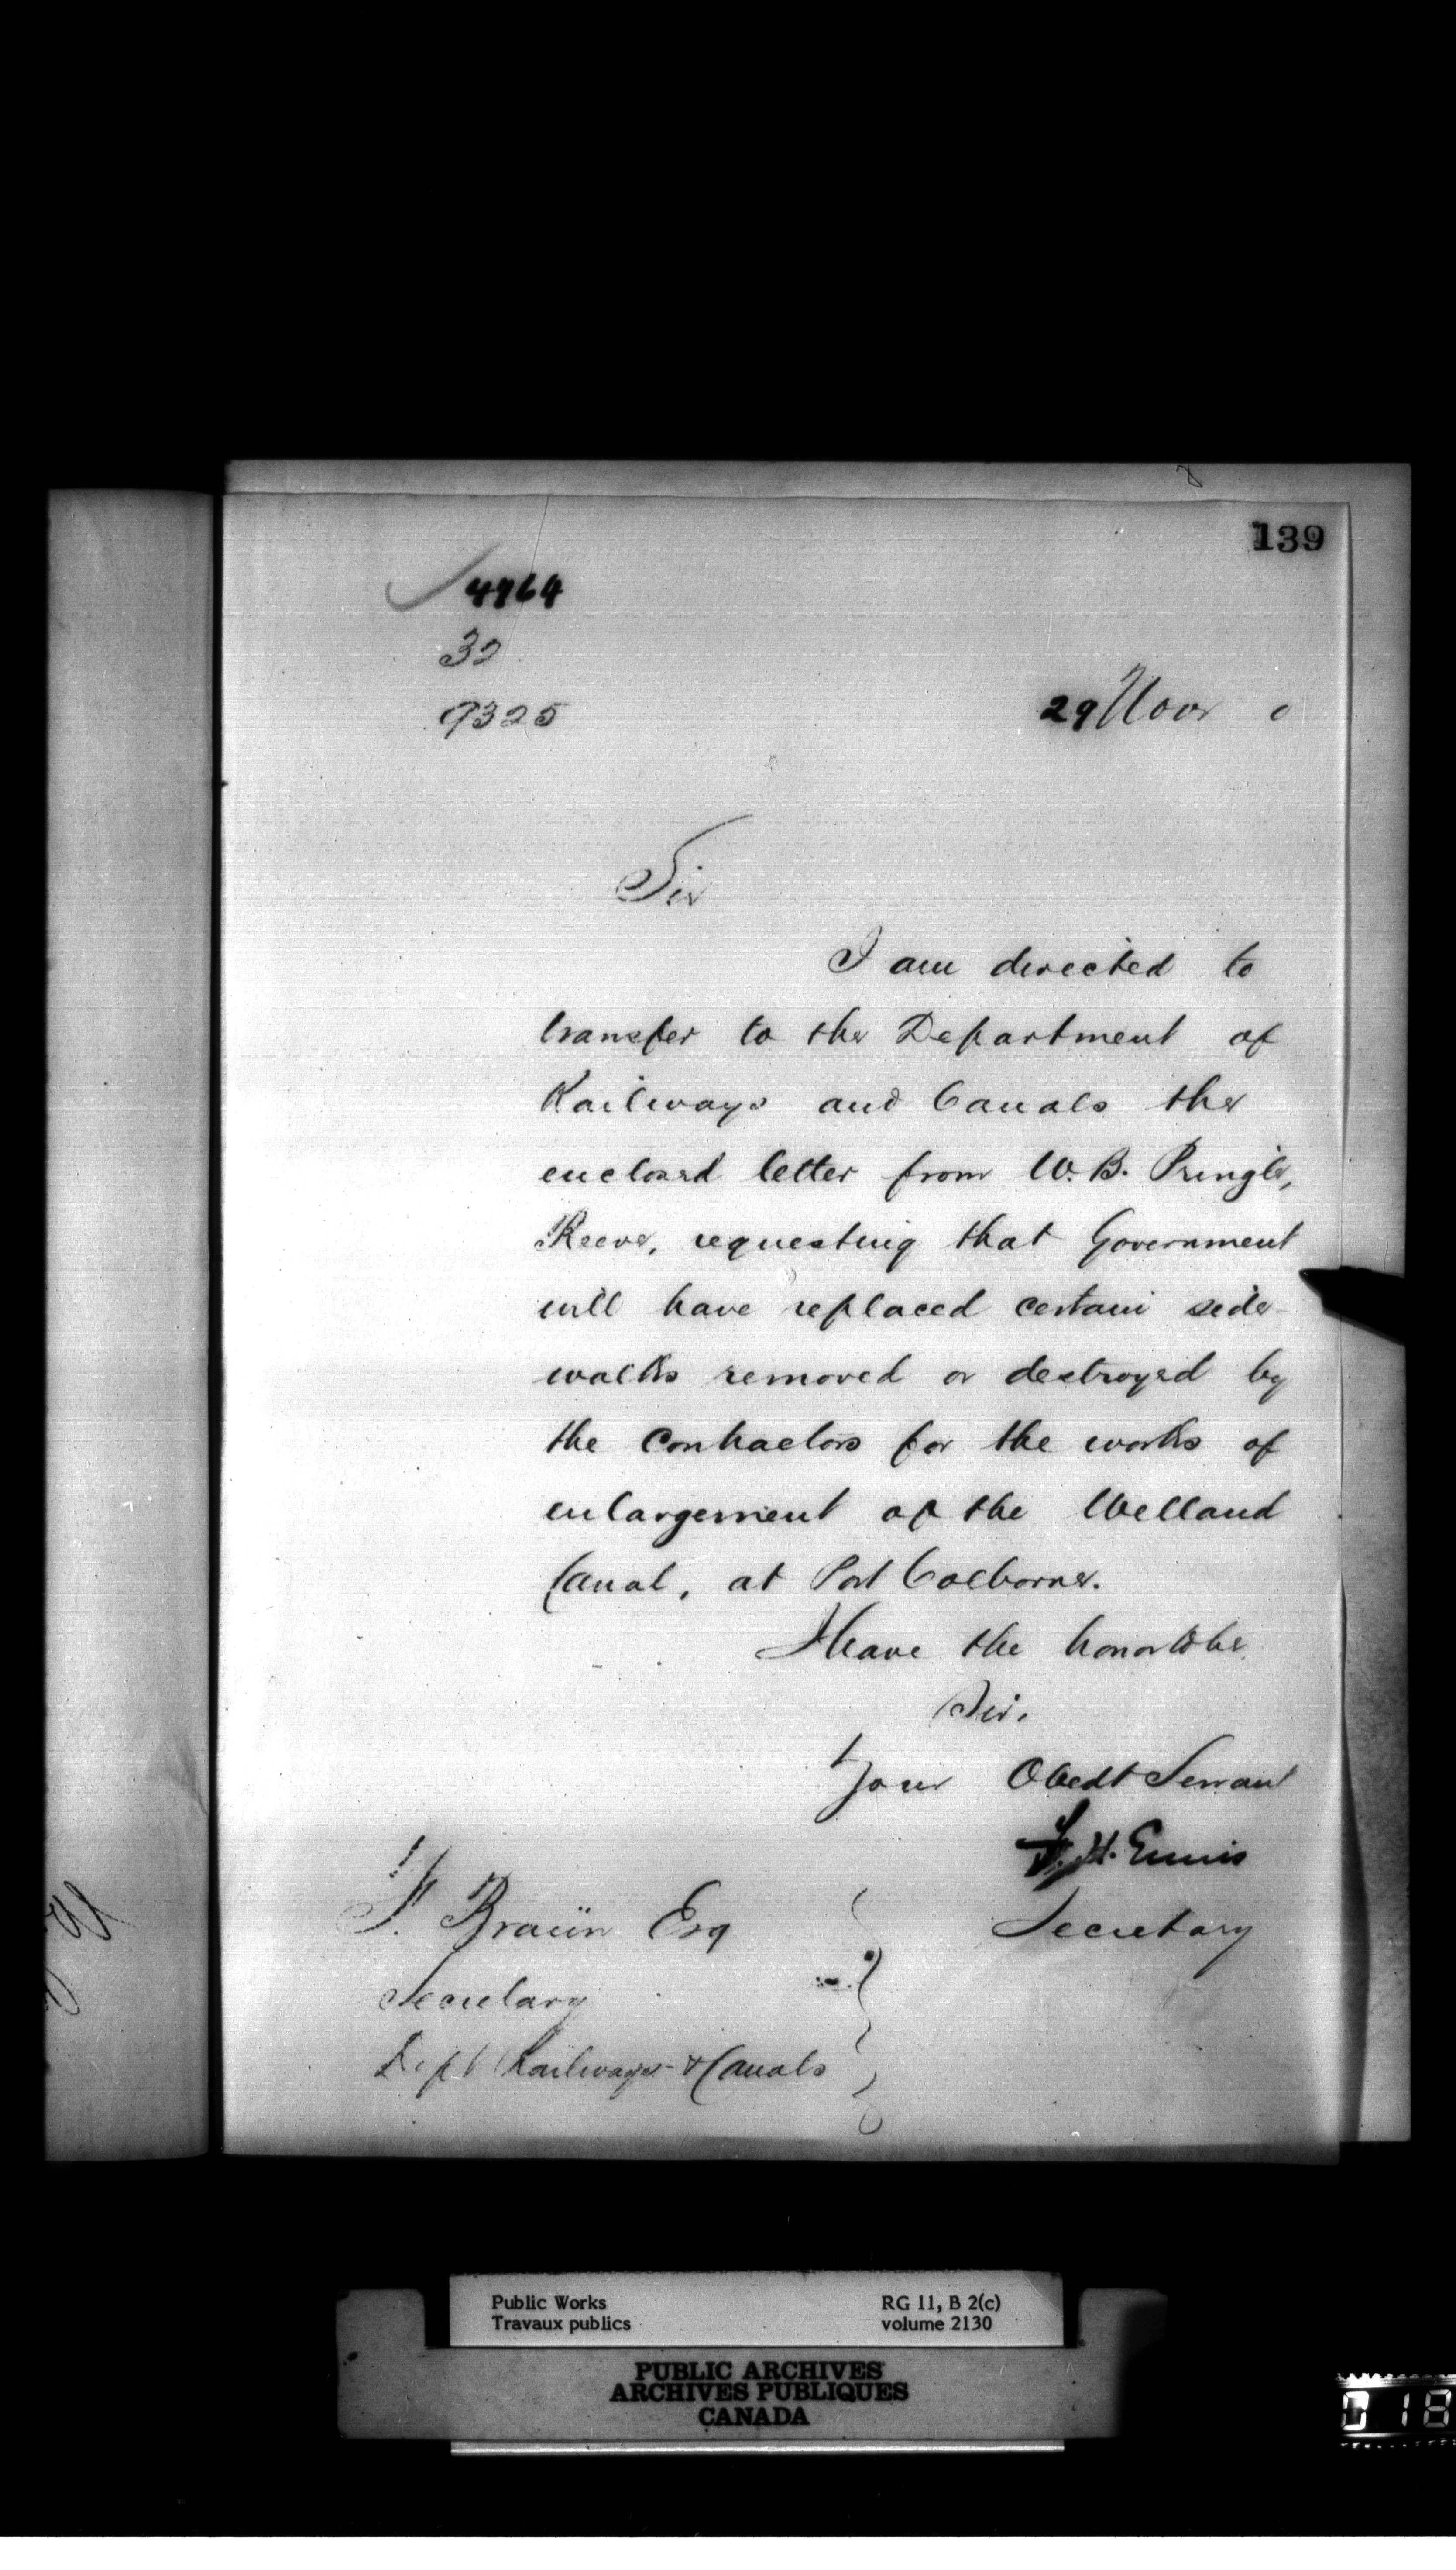 139
4964
32
9325
29 Novr 0
Sir
I am directed to
transfer to the Department of
Railways and Canals the
enclosed letter from W. B. Pringle,
Reeve, requesting that Government
will have replaced certain side-
walks removed or destroyed by
the contractors for the works of
enlargement of the Welland
Canal, at Port Colborne.
I have the honor to be
Sir.
Your Obedt Servant
F. H. Ennis
Secretary
F. Braün Esq
Secretary
Dept Railways & Canals
Public Works
Travaux publics
RG 11, B 2(c)
volume 2130
PUBLIC ARCHIVES
ARCHIVES PUBLIQUES
CANADA
18